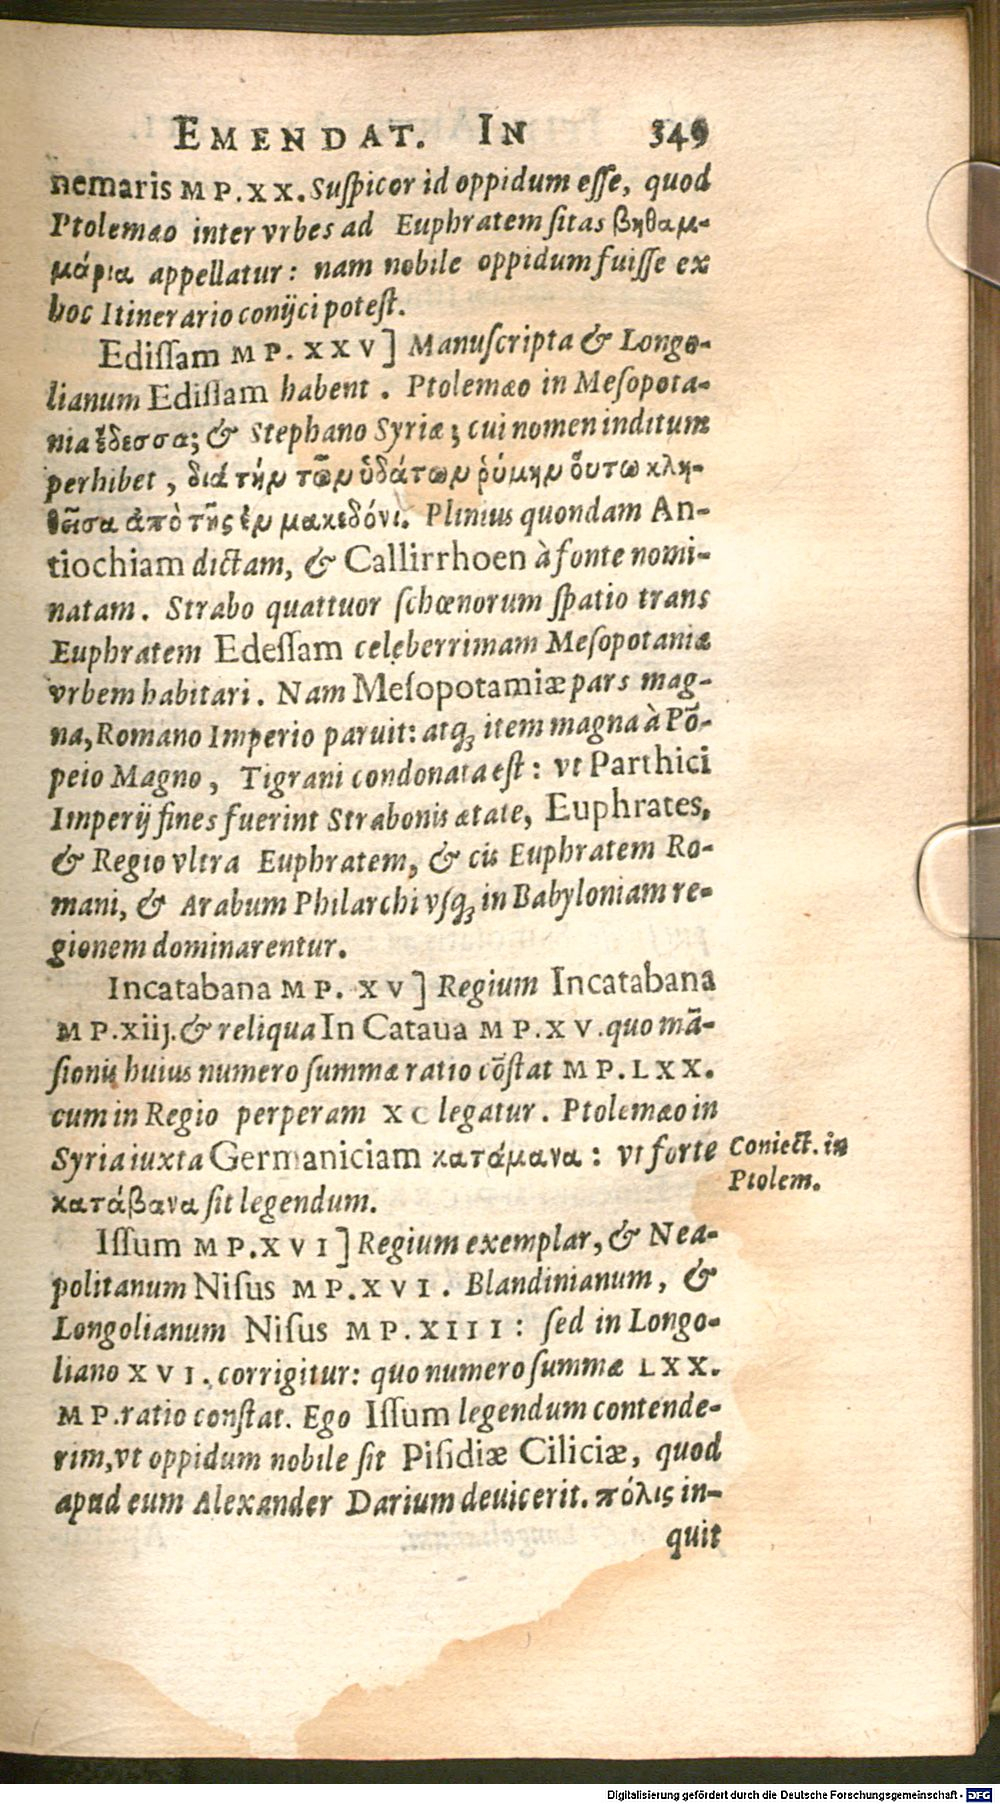 EMENDAT. IN 349
nemaris MP.XX. Suſpicor id oppidum eſſe, quod
Ptolemæo inter vrbes ad Euphratem ſitas βηθαμ-
μάρια appellatur: nam nobile oppidum fuiſſe ex
hoc Itinerario conijci poteſt.
Ediſſam MP. XXV] Manuſcripta & Longo-
lianum Ediſſam habent. Ptolemæo in Meſopota-
nia ἔδεσσα; & Stephano Syriæ; cui nomen inditum
perhibet, διὰ τὴν τῶν ὑδάτων ῥύμην οὕτω κλη-
θεῖσα ἀπὸ τῆς ἐν μακεδόνι. Plinius quondam An-
tiochiam dictam, & Callirrhoen à fonte nomi-
natam. Strabo quattuor ſchœnorum ſpatio trans
Euphratem Edeſſam celeberrimam Meſopotaniæ
vrbem habitari. Nam Meſopotamiæ pars mag-
na, Romano Imperio paruit: atq; item magna à Põ-
peio Magno, Tigrani condonata eſt: vt Parthici
Imperij fines fuerint Strabonis ætate, Euphrates,
& Regio vltra Euphratem, & cis Euphratem Ro-
mani, & Arabum Philarchi vſq; in Babyloniam re-
gionem dominarentur.
Incatabana MP. XV] Regium Incatabana
MP.xiij. & reliqua In Cataua MP.XV. quo mã-
ſionis huius numero ſummæ ratio cõſtat MP.LXX.
cum in Regio perperam XC legatur. Ptolemæo in
Syria iuxta Germaniciam κατάμανα: vt forte
κατάβανα ſit legendum.
Coniect. in
Ptolem.
Iſſum MP.XVI] Regium exemplar, & Nea-
politanum Niſus MP.XVI. Blandinianum, &
Longolianum Niſus MP.XIII: ſed in Longo-
liano XVI. corrigitur: quo numero ſummæ LXX.
MP. ratio conſtat. Ego Iſſum legendum contende-
rim, vt oppidum nobile ſit Piſidiæ Ciliciæ, quod
apud eum Alexander Darium deuicerit. πόλις in-
quit
Digitalisierung gefördert durch die Deutsche Forschungsgemeinschaft - DFG